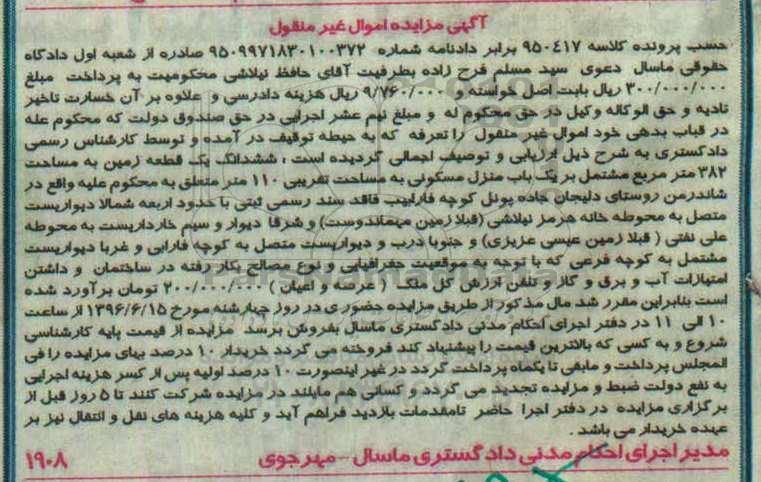 آگهی مزایده اموال غیر منقول
حسب پرونده کلاسه ۹۵۰٤۱۷ برابر دادنامه شماره ۹۵۰۹۹۷۱۸۳۰۱۰۰۳۷۲ صادره از شعبه اول دادگاه
حقوقی ماسال دعوی سید مسلم فرج زاده بطرفیت آقای حافظ نیلاشی محکومیت به پرداخت مبلغ
۳۰۰/۰۰۰/۰۰۰ ریال بابت اصل خواسته و ۹/۷۶۰/۰۰۰ ریال هزینه دادرسی و علاوه بر آن خسارت تاخیر
تادیه و حق الوکاله وکیل در حق محکوم له و مبلغ نیم عشر اجرایی در حق صندوق دولت که محکوم عله
در قباب بدهی خود اموال غیر منقول را تعرفه که به حیطه توقیف در آمده و توسط کارشناس رسمی
دادگستری به شرح ذیل ارزیابی و توصیف اجمالی گردیده است ، ششدانگ یک قطعه زمین به مساحت
۳۸۲ متر مربع مشتمل بر یک باب منزل مسکونی به مساحت تقریبی ۱۱۰ متر متعلق به محکوم علیه واقع در
شاندرمن روستای دلیجان جاده پونل کوچه فارابیب فاقد سند رسمی ثبتی با حدود اربعه شمالا دیواریست
متصل به محوطه خانه هرمز نیلاشی (قبلا زمین میهماندوست) و شرقا دیوار و سیم خارداریست به محوطه
علی نفتی ( قبلا زمین عیسی عزیزی) و جنوبا درب و دیواریست متصل به کوچه فارابی و غربا دیواریست
مشتمل به کوچه فرعی که با توجه به موقعیت جغرافیایی و نوع مصالح بکار رفته در ساختمان و داشتن
امتیازات آب و برق و گاز و تلفن ارزش کل ملک ( عرصه و اعیان ) ۲۰۰/۰۰۰/۰۰۰ تومان برآورد شده
است بنابراین مقرر شد مال مذکور از طریق مزایده حضوری در روز چهارشنبه مورخ ۱۳۹۶/۶/۱۵ از ساعت
۱۰ الی ۱۱ در دفتر اجرای احکام مدنی دادگستری ماسال بفروش برسد مزایده از قیمت پایه کارشناسی
شروع و به کسی که بالاترین قیمت را پیشنهاد کند فروخته می گردد خریدار ۱۰ درصد بهای مزایده را فی
المجلس پرداخت و مابقی تا یکماه پرداخت گردد در غیر اینصورت ۱۰ درصد اولیه پس از کسر هزینه اجرایی
به نفع دولت ضبط و مزایده تجدید می گردد و کسانی هم مایلند در مزایده شرکت کنند تا ۵ روز قبل از
برگزاری مزایده در دفتر اجرا حاضر تامقدمات بازدید فراهم آید و کلیه هزینه های نقل و انتقال نیز بر
عهده خریدار می باشد .
مدیر اجرای احکام مدنی دادگستری ماسال – مهرجوی ۱۹۰۸